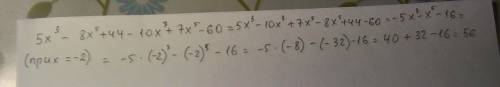 5x³ - 8x⁵ + 44 - 10x³ + 7x⁵ - 60 = 5x³ - 10x³ + 7x⁵ - 8x⁵ + 44 - 60 = -5x³ - x⁵ - 16 =
(при x = -2) = -5 · (-2)³ - (-2)⁵ - 16 = -5 · (-8) - (-32) - 16 = 40 + 32 - 16 = 56